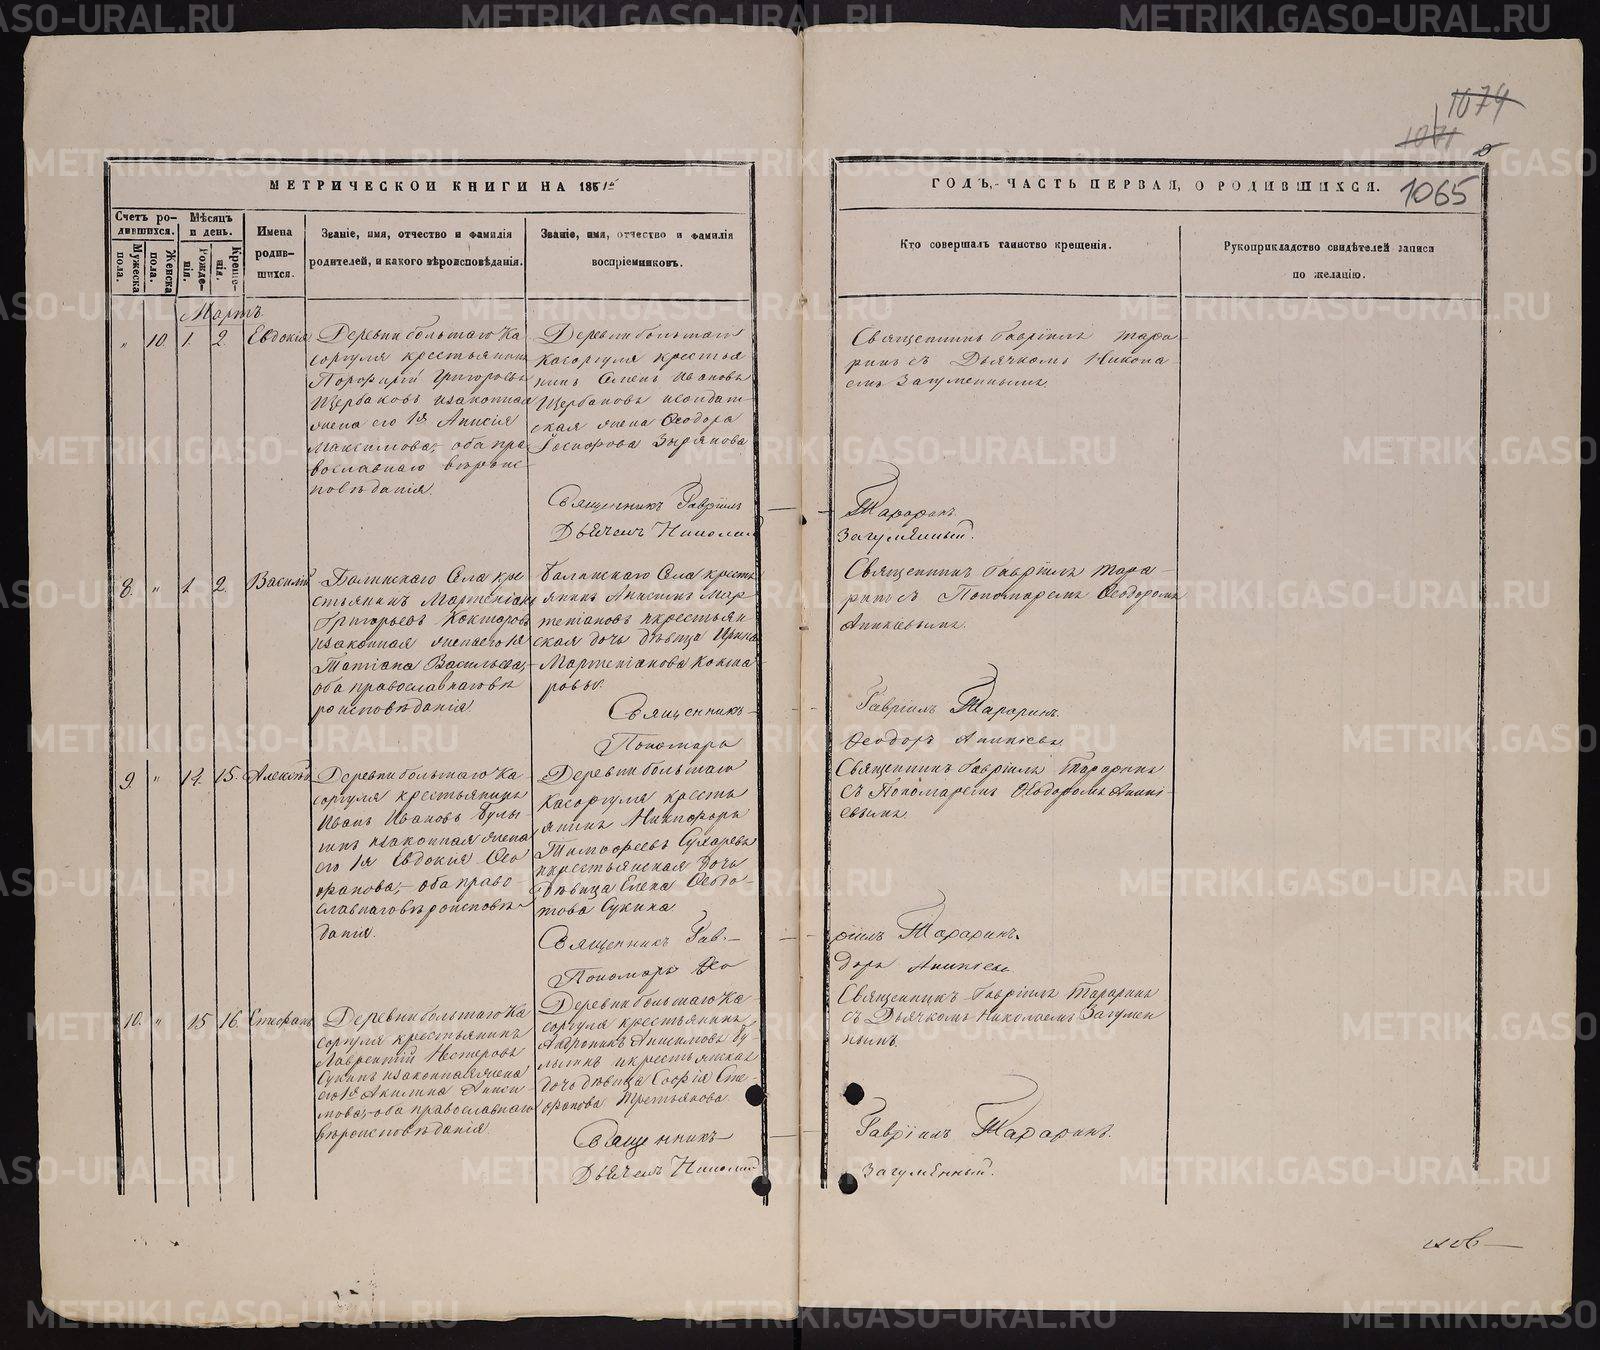 1074
1071
1065
МЕТРИЧЕСКОЙ КНИГИ НА 1861й
Счетъ ро-
дившихся.
Мужеска
пола.
Женска
пола.
Мѣсяцъ
и день.
Рожде-
нія.
Креще-
нія.
Имена
родив-
шихся.
Званіе, имя, отчество и фамилія
родителей, и какого вѣроисповѣданія.
Званіе, имя, отчество и фамилія
воспріемниковъ.
ГОДЪ,- ЧАСТЬ ПЕРВАЯ, О РОДИВШИХСЯ.
Кто совершалъ таинство крещенія.
Рукоприкладство свидѣтелей записи
по желанію.
Мартъ
„ 10. 1. 2. Евдокія
Деревни большаго Ка
саргуля крестьянинъ
Порфирій Григорьевъ
Щербаковъ изаконная
жена его 1я Анисія
Максимова,- оба пра
вославнаго вѣроис-
повѣданія.
Деревни большаго
Касаргуля крестья
нинъ Семенъ Ивановъ
Щербаковъ исолдат-
ская жена Ѳеодора
Зырянова
Священникъ Гавріилъ
Дьячекъ Николай
Священникъ Гавріилъ Тара
ринъ съ Дьячкомъ Никола
емъ Загуменнымъ.
Тараринъ.
Загумённый.
8. „ 1. 2. Василій
села кре
стьянинъ Мартеніанъ
Григорьевъ Кокшаровъ
изаконная женаего 1я
Татіана Васильева,-
оба православнаговѣ
роисповѣданія.
села кресть
янинъ Анисимъ Мар
теніановъ икрестьян
ская дочь дѣвица Ирина
Мартеніанова Кокша
ровы.
Священникъ
Пономарь
Священникъ Гавріилъ Тара-
ринъ съ Пономаремъ Ѳеодоромъ
Аникіевымъ.
Гавріилъ Тараринъ.
Ѳеодоръ Аникіевъ.
9. „ 14. 15. Алексѣй
Деревни большаго Ка-
саргуля крестьянинъ
Иванъ Ивановъ Булы-
гинъ изаконная жена
его 1я Евдокія Ѳео
фанова,- оба право
славнаговѣроисповѣ-
данія.
Деревни большаго
Касаргуля кресть
янинъ Никифоръ
Тимофеевъ Сухаревъ
икрестьянская дочь
дѣвица Елена Ѳеодо-
това Сукина
Священникъ Гав-
Пономарь Ѳео
Священникъ Гавріилъ Тараринъ
съ Пономаремъ Ѳеодоромъ Аникі-
евымъ.
ріилъ Тараринъ.
доръ Аникіевъ
10. „ 15 16. Стефанъ
Деревни большаго Ка
саргуля крестьянинъ
Лаврентій Нестеровъ
Сукинъ изаконнаяжена
его 1я Акилина Аниси-
мова,-оба православнаго
вѣроисповѣданія.
Деревни большаго Ка-
саргуля крестьянинъ
Андроникъ Анисимовъ Бу-
лыгинъ икрестьянская
дочь дѣвица Софія Сте-
фанова Третьякова.
Священникъ
Дьячекъ Николай
Священникъ Гавріилъ Тараринъ
съ Дьячкомъ Николаемъ Загумен
нымъ.
Гавріилъ Тараринъ.
Загумённый.